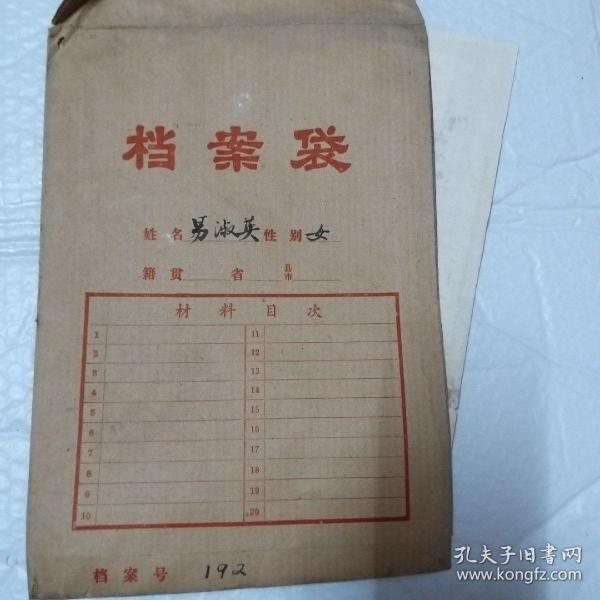 档案袋
姓名易淑英性别女
籍贯 省 县市
材料目次
1 11
2 12
3 13
4 14
5 15
6 16
7 17
8 18
9 19
10 20
档案号 192
孔夫子旧书网
www.kongfz.com